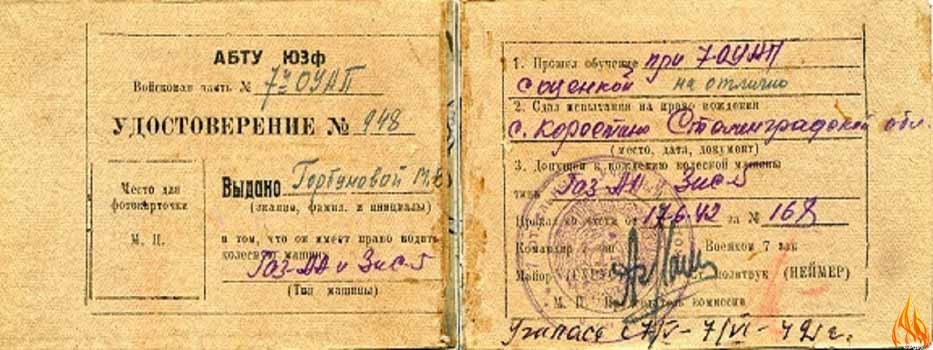 АБТУ ЮЗф
Войсковая часть № 7й ОУАП
УДОСТОВЕРЕНИЕ № 948
Место для
фотокарточки
М. П.
Выдано Горбуновой М.
(звание, фамил. и инициалы)
в том, что он имеет право водить
колесную машину
Газ-АА и Зис-5
(Тип машины)
1. Прошел обучение при 7-ОУАП
с оценкой на отлично
2. Сдал испытания на право вождения
с. Коростино Сталинградской обл.
(место, дата, документ)
3. Допущен к вождению колесной машины
типа Газ-АА и Зис-5
Приказ по части от 17.6.42 за № 168
Командир 7 Военком 7
Майор политрук (НЕЙМЕР)
М. П. Председатель комиссии
7/V-7/VI-42 г.